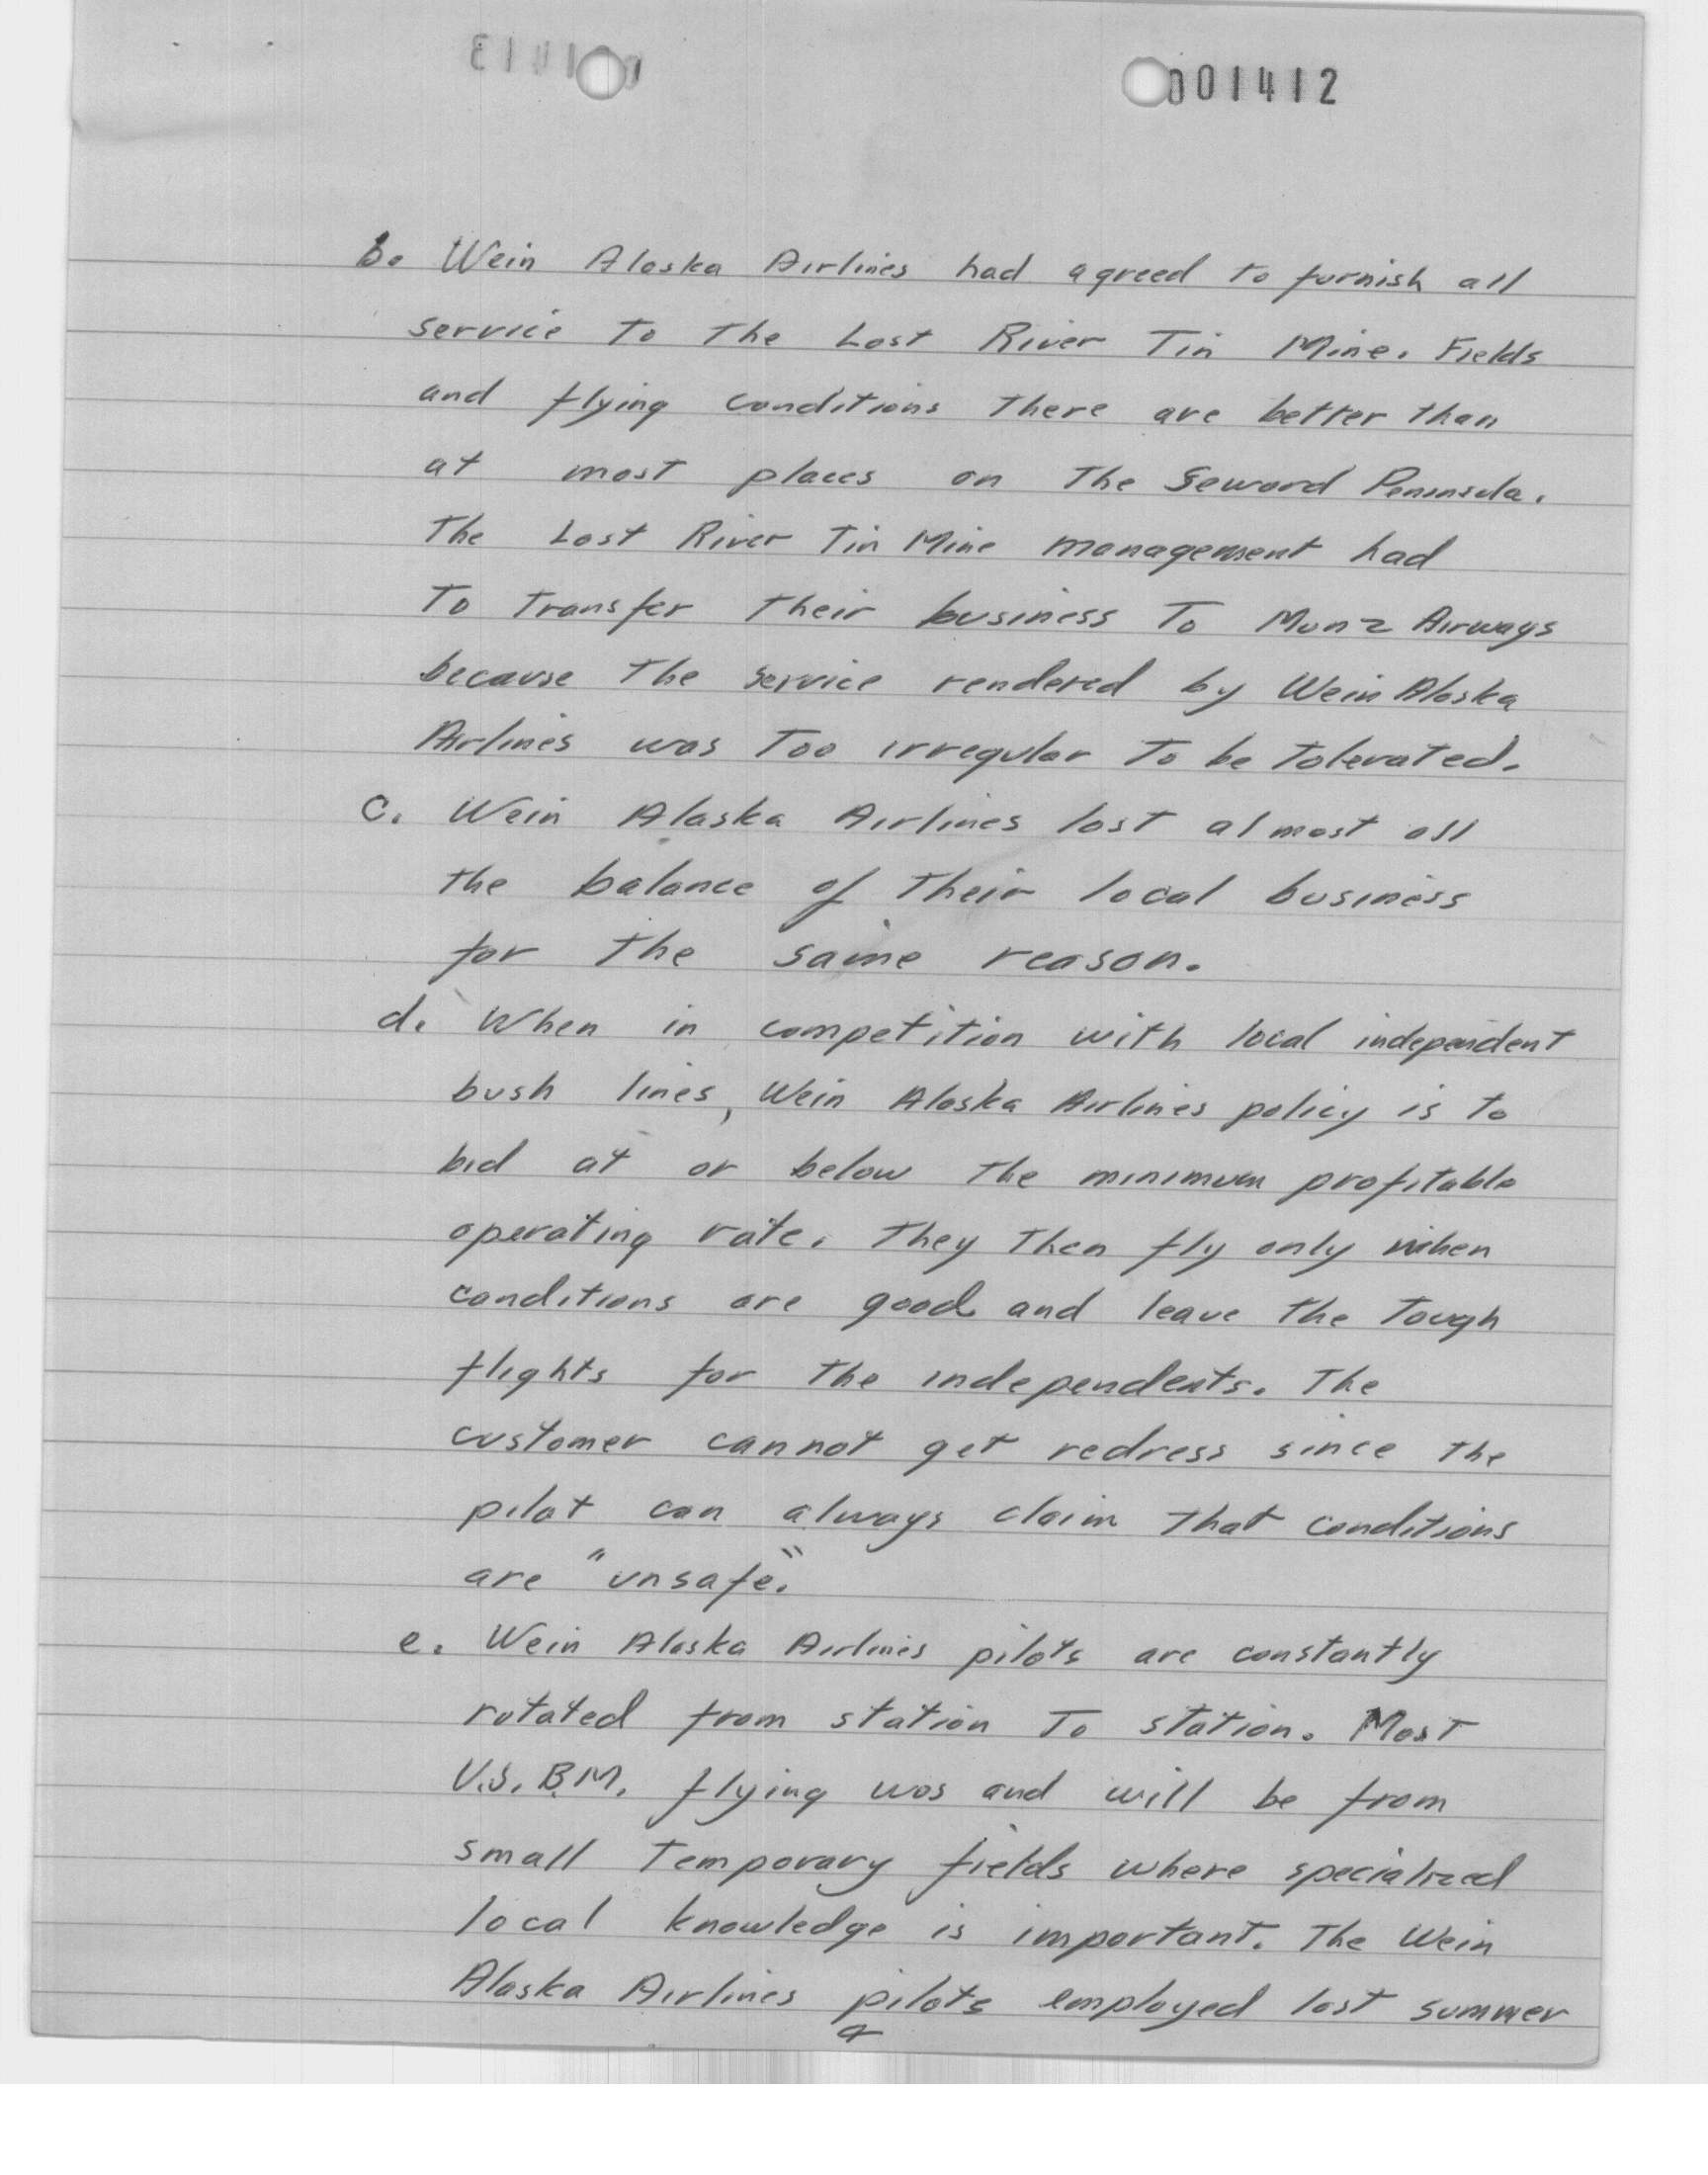 001412
b. Wein Alaska Airlines had agreed to furnish all
service to the Lost River Tin Mine. Fields
and flying conditions there are better than
at most places on the Seward Peninsula.
The Lost River Tin Mine management had
to transfer their business to Munz Airways
because the service rendered by Wein Alaska
Airlines was too irregular to be tolerated.
c. Wein Alaska Airlines lost almost all
the balance of their local business
for the same reason.
d. When in competition with local independent
bush lines, Wein Alaska Airlines policy is to
bid at or below the minimum profitable
operating rate. They then fly only when
conditions are good and leave the tough
flights for the independents. The
customer cannot get redress since the
pilot can always claim that conditions
are "unsafe."
e. Wein Alaska Airlines pilots are constantly
rotated from station to station. Most
U.S.B.M. flying was and will be from
small temporary fields where specialized
local knowledge is important. The Wein
Alaska Airlines pilots employed last summer